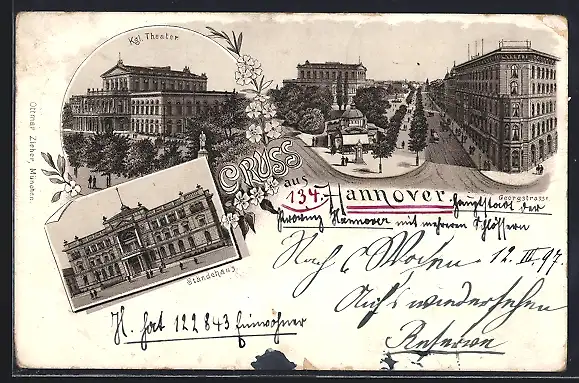 Kgl. Theater
Ottmar Zieher, München.
GRUSS
aus 134. HANNOVER. Hauptstadt der
Georgstrasse
Provinz Hannover mit mehreren Schlössern
Ständehaus
Nach 6 Wochen 12. III. 97.
H. hat 122843 Einwohner
Auf's wiedersehen
Reserve